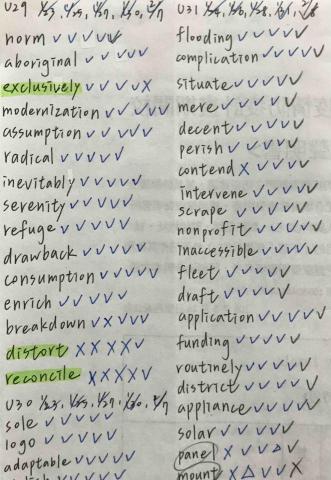 U29
norm ✓✓✓✓✓
aboriginal ✓✓✓✓✓
exclusively ✓✓✓✓X
modernization ✓✓✓✓✓
assumption ✓✓✓✓✓
radical ✓✓✓✓✓
inevitably ✓✓✓✓✓
serenity ✓✓✓✓✓
refuge ✓✓✓✓✓
drawback ✓✓✓✓✓
consumption ✓✓✓✓✓
enrich ✓✓✓✓✓
breakdown ✓X✓✓✓
distort XXXX✓
reconcile XXXX✓
U30
sole ✓✓✓✓✓
logo ✓✓✓✓✓
adaptable ✓✓✓✓✓
U31
flooding ✓✓✓✓✓
complication ✓✓✓✓✓
situate ✓✓✓✓✓
mere ✓✓✓✓✓
decent ✓✓✓✓✓
perish ✓✓✓✓✓
contend X✓✓✓✓
intervene ✓✓✓✓✓
scrape ✓✓✓✓✓
nonprofit ✓✓✓✓✓
inaccessible ✓✓✓✓✓
fleet ✓✓✓✓✓
draft ✓✓✓✓✓
application ✓✓✓✓✓
funding ✓✓✓✓✓
routinely ✓✓✓✓✓
district ✓✓✓✓✓
appliance ✓✓✓✓✓
solar ✓✓✓✓✓
panel X✓✓△✓
mount X△✓✓X